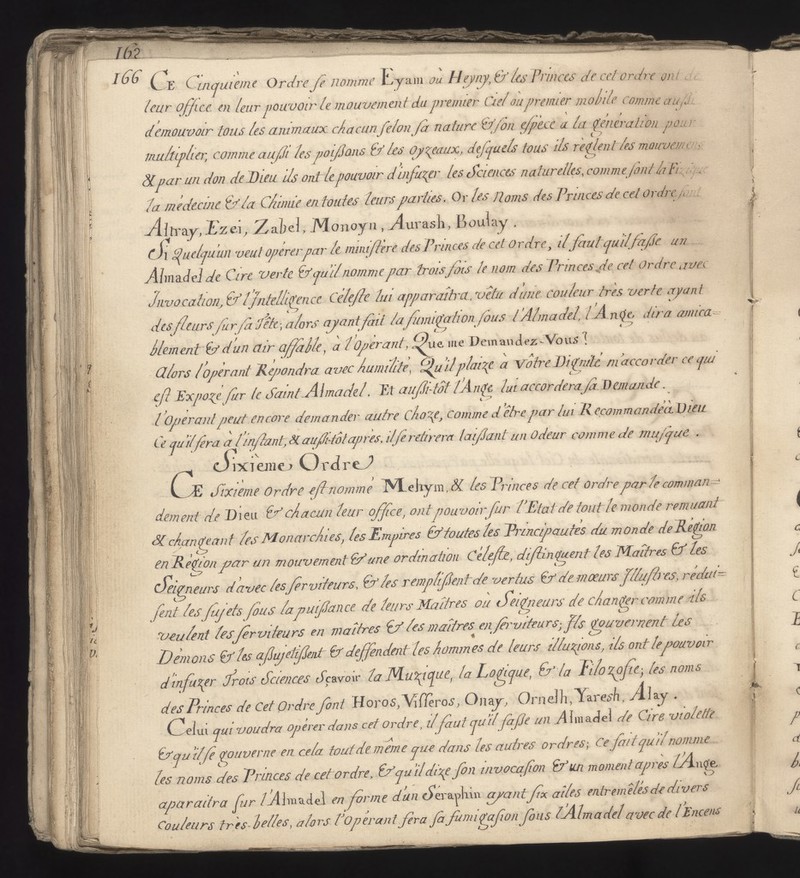 162
166 CE Cinquième Ordre se nomme Eyam où Heyny, & les Princes de cet ordre ont de
leur office en leur pouvoir le mouvement du premier Ciel où premier mobile comme aussi
d'émouvoir tous les animaux chacun selon sa nature & son espèce à la génération pour
multiplier, comme aussi les poissons & les oyzeaux, desquels tous ils règlent les mouvemens
& par un don de Dieu ils ont le pouvoir d'infuzer les Sciences naturelles, comme sont la Fizique
la médecine & la Chimie en toutes leurs parties. Or les Noms des Princes de cet ordre sont
Altray, Ezei, Zabel, Monoyn, Aurash, Boulay.
Si Quelqu'un veut opérer par le ministère des Princes de cet ordre, il faut qu'il fasse un
Almadel de Cire verte & qu'il nomme par trois fois le nom des Princes de cet ordre avec
Invocation, & l'Intelligence Céleste lui apparaîtra, vêtu d'une couleur très verte ayant
des fleurs sur sa Tête; alors ayant fait la fumigation sous l'Almadel, l'Ange, dira amica=
blement & d'un air affable, à l'Opérant, Que me Demandez-Vous!
Alors l'opérant Répondra avec humilité, Qu'il plaize à Vôtre Dignité m'accorder ce qui
est Expozé sur le Saint Almadel. Et aussi-tôt l'Ange lui accordera sa Demande.
l'Opérant peut encore demander autre Choze, comme d'être par lui Recommandé à Dieu
Ce qu'il fera à l'instant, & aussi-tôt après, il se retirera laissant un odeur comme de musque.
Sixième Ordre
CE Sixième ordre est nommé Mehym, & les Princes de cet ordre par le comman=
dement de Dieu & chacun leur office, ont pouvoir sur l'Etat de tout le monde remuant
& changeant les Monarchies, les Empires & toutes les Principautés du monde de Région
en Région par un mouvement & une ordination Céleste, distinguent les Maîtres & les
Seigneurs d'avec les serviteurs, & les remplissent de vertus & de mœurs Illustres, rédui=
sent les sujets sous la puissance de leurs Maîtres où Seigneurs de changer comme ils
veulent les serviteurs en maîtres & les maîtres en serviteurs; Ils gouvernent les
Démons & les assujetissent & deffendent les hommes de leurs illuzions, ils ont le pouvoir
d'infuzer Trois Sciences Scavoir la Muzique, la Logique, & la Filozofie; les noms
des Princes de Cet Ordre sont Horos, Visseros, Onay, Ornelh, Yaresh, Alay.
Celui qui voudra opérer dans cet ordre, il faut qu'il fasse un Almadel de Cire violette
& qu'il se gouverne en cela tout de même que dans les autres ordres; Ce fait qu'il nomme
les noms des Princes de cet ordre, & qu'il dize son invocasion & un moment après l'Ange
aparaîtra sur l'Almadel en forme d'un Séraphin ayant six ailes entremêlés de divers
couleurs très-belles, alors l'Opérant fera sa fumigasion sous l'Almadel avec de l'Encens